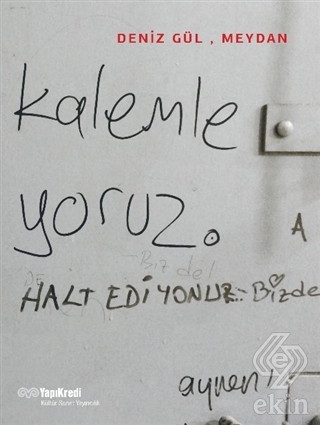 DENİZ GÜL , MEYDAN
kalemle
yoruz.
A
-Biz de!
DE
HALT EDİYONUZ. Bizde
YapıKredi
Kültür Sanat Yayıncılık
aynen!
ekin